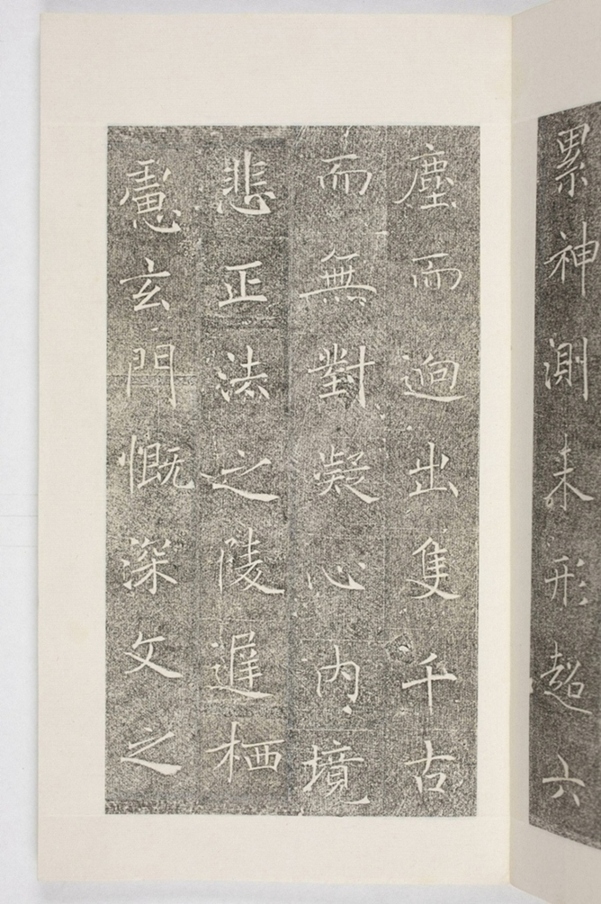 累神測未形超六
塵而逈出隻千古
而無對凝心內境
悲正法之陵遲栖
慮玄門慨深文之